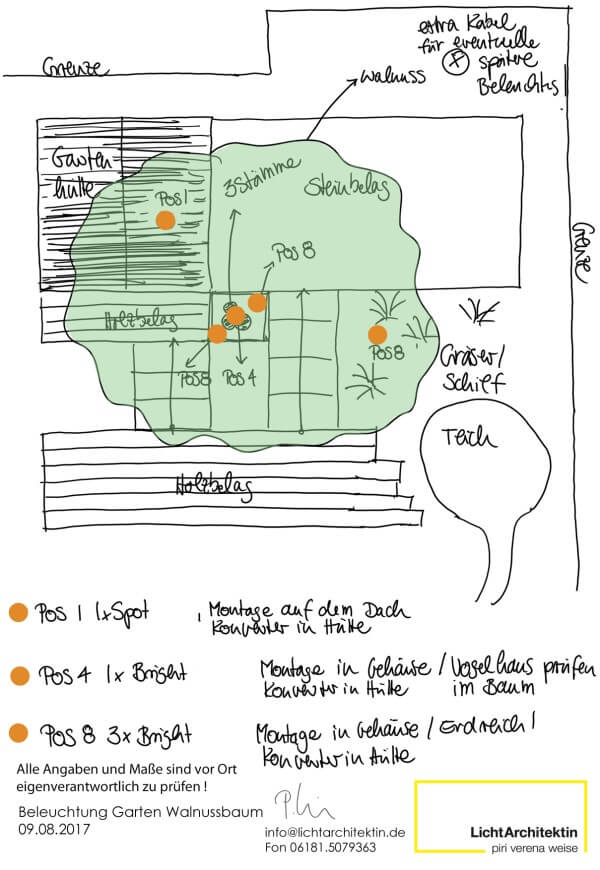 extra Kabel
für eventuelle
spätere
Beleuchtg
Grenze
Walnuss
Garten
hütte
3 Stämme
Steinbelag
Pos 1
Pos 8
Grenze
Holzbelag
Pos 8
Pos 4
Pos 8
Gräser/
Schilf
Teich
Holzbelag
Pos 1 1x Spot , Montage auf dem Dach
Konverter in Hütte
Pos 4 1x Bright Montage in Gehäuse / Vogelhaus prüfen
Konverter in Hütte im Baum
Pos 8 3x Bright Montage in Gehäuse / Erdreich !
Konverter in Hütte
Alle Angaben und Maße sind vor Ort
eigenverantwortlich zu prüfen !
Beleuchtung Garten Walnussbaum
09.08.2017
info@lichtarchitektin.de
Fon 06181.5079363
LichtArchitektin
piri verena weise